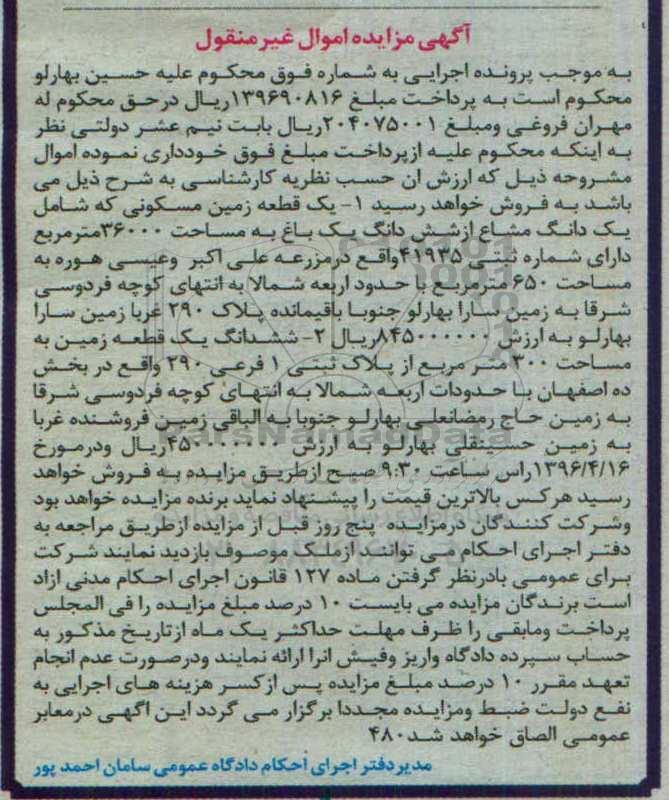 آگهی مزایده اموال غیر منقول
به موجب پرونده اجرایی به شماره فوق محکوم علیه حسین بهارلو
محکوم است به پرداخت مبلغ ۱۳۹۶۹۰۸۱۶ریال درحق محکوم له
مهران فروغی ومبلغ ۲۰۴۰۷۵۰۰۱ریال بابت نیم عشر دولتی نظر
به اینکه محکوم علیه ازپرداخت مبلغ فوق خودداری نموده اموال
مشروحه ذیل که ارزش ان حسب نظریه کارشناسی به شرح ذیل می
باشد به فروش خواهد رسید ۱- یک قطعه زمین مسکونی که شامل
یک دانگ مشاع ازشش دانگ یک باغ به مساحت ۳۶۰۰۰مترمربع
دارای شماره ثبتی ۴۱۹۳۵واقع درمزرعه علی اکبر وعیسی هوره به
مساحت ۶۵۰ مترمربع با حدود اربعه شمالا به انتهای کوچه فردوسی
شرقا به زمین سارا بهارلو جنوبا باقیمانده پلاک ۲۹۰ غربا زمین سارا
بهارلو به ارزش ۸۴۵۰۰۰۰۰۰ریال ۲- ششدانگ یک قطعه زمین به
مساحت ۳۰۰ متر مربع از پلاک ثبتی ۱ فرعی ۲۹۰ واقع در بخش
ده اصفهان با حدودات اربعه شمالا به انتهای کوچه فردوسی شرقا
به زمین حاج رمضانعلی بهارلو جنوبا به الباقی زمین فروشنده غربا
به زمین حسینقلی بهارلو به ارزش ۴۵۰۰۰۰۰۰۰ریال ودرمورخ
۱۳۹۶/۴/۱۶راس ساعت ۹:۳۰ صبح ازطریق مزایده به فروش خواهد
رسید هرکس بالاترین قیمت را پیشنهاد نماید برنده مزایده خواهد بود
وشرکت کنندگان درمزایده پنج روز قبل از مزایده ازطریق مراجعه به
دفتر اجرای احکام می توانند ازملک موصوف بازدید نمایند شرکت
برای عمومی بادرنظر گرفتن ماده ۱۲۷ قانون اجرای احکام مدنی ازاد
است برندگان مزایده می بایست ۱۰ درصد مبلغ مزایده را فی المجلس
پرداخت ومابقی را ظرف مهلت حداکثر یک ماه ازتاریخ مذکور به
حساب سپرده دادگاه واریز وفیش انرا ارائه نمایند ودرصورت عدم انجام
تعهد مقرر ۱۰ درصد مبلغ مزایده پس ازکسر هزینه های اجرایی به
نفع دولت ضبط ومزایده مجددا برگزار می گردد این اگهی درمعابر
عمومی الصاق خواهد شد۴۸۰
مدیر دفتر اجرای احکام دادگاه عمومی سامان احمد پور
ParsNamadData